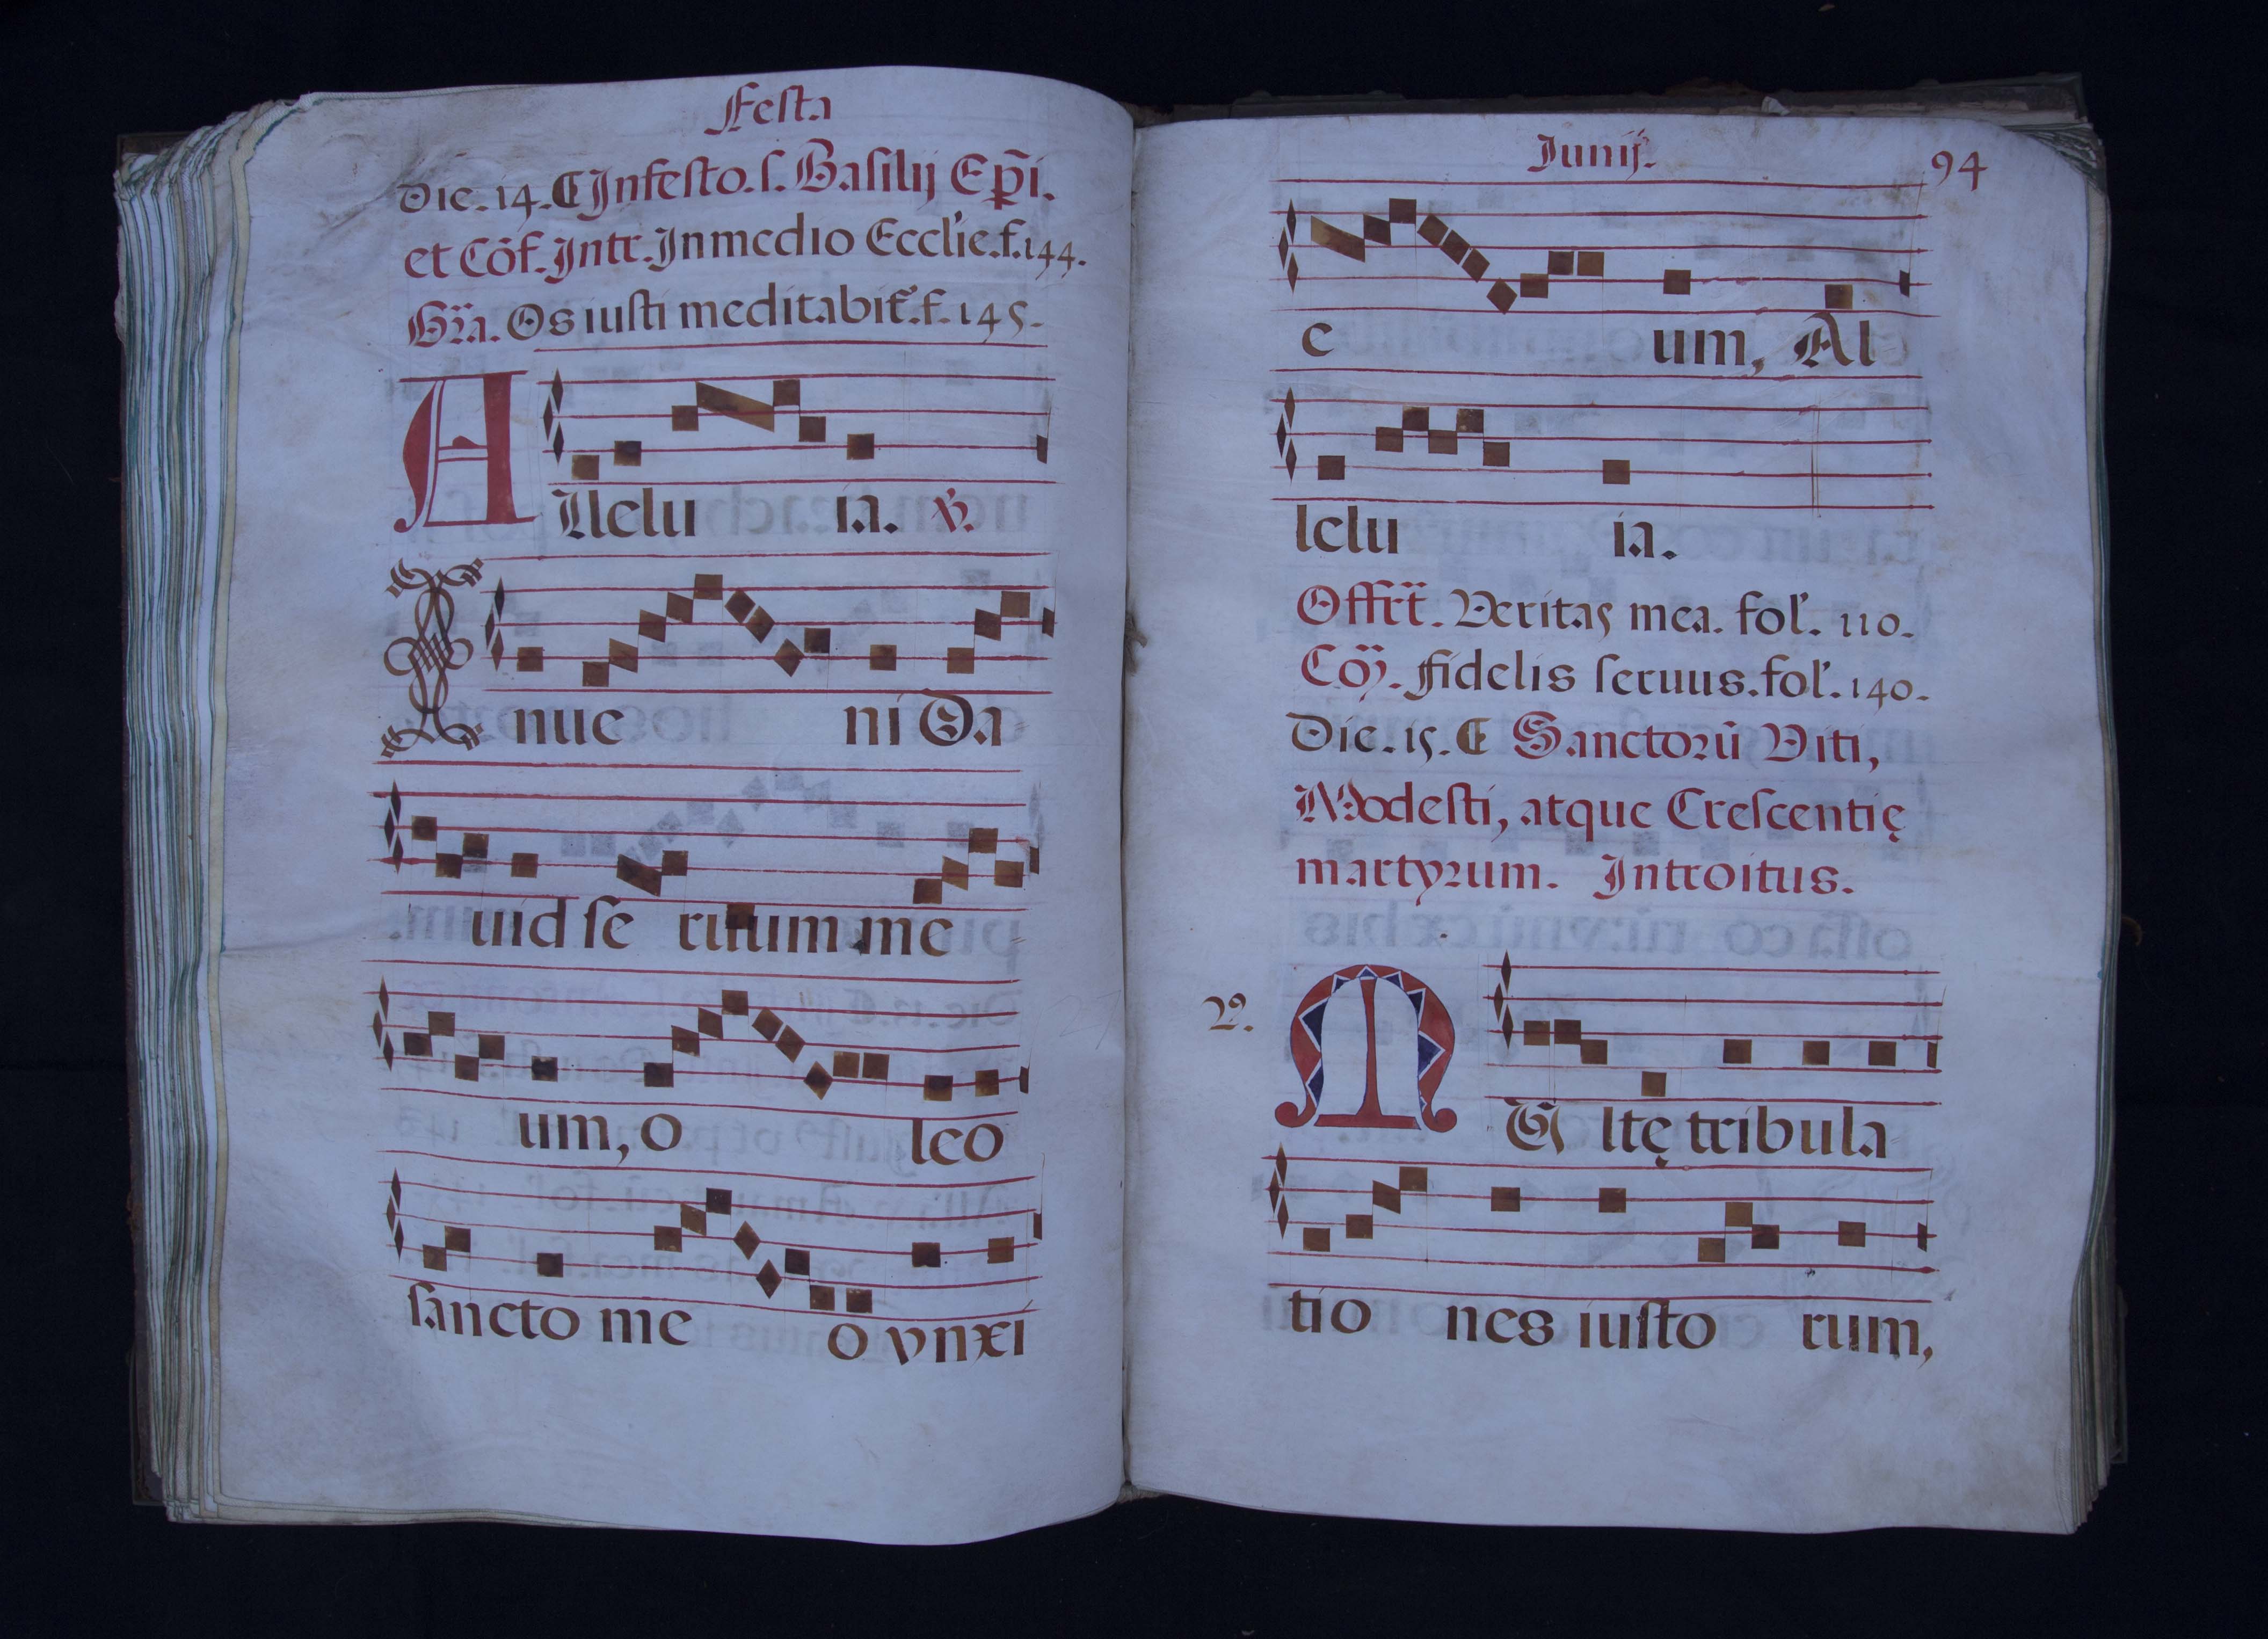 Festa
Die. 14. ¶ Jn festo. ſ. Baſilij Ep̃i.
et Cõf. Jntr. Jn medio Eccl'ie. f. 144.
Gr̃a. Os iuſti meditabit̃. f. 145.
Allelu ia. ℣.
Jnue ni Da
uid ſe ruum me
um, o leo
ſancto me o vnxi
Junij.
94
e um, Al
lelu ia.
Offr̃t. Veritas mea. fol'. 110.
Cõ. fidelis ſeruus. fol'. 140.
Die. 15. ¶ Sanctorũ Viti,
Modeſti, atque Creſcentię
martyrum. Introitus.
MV ltę tribula
tio nes iuſto rum,